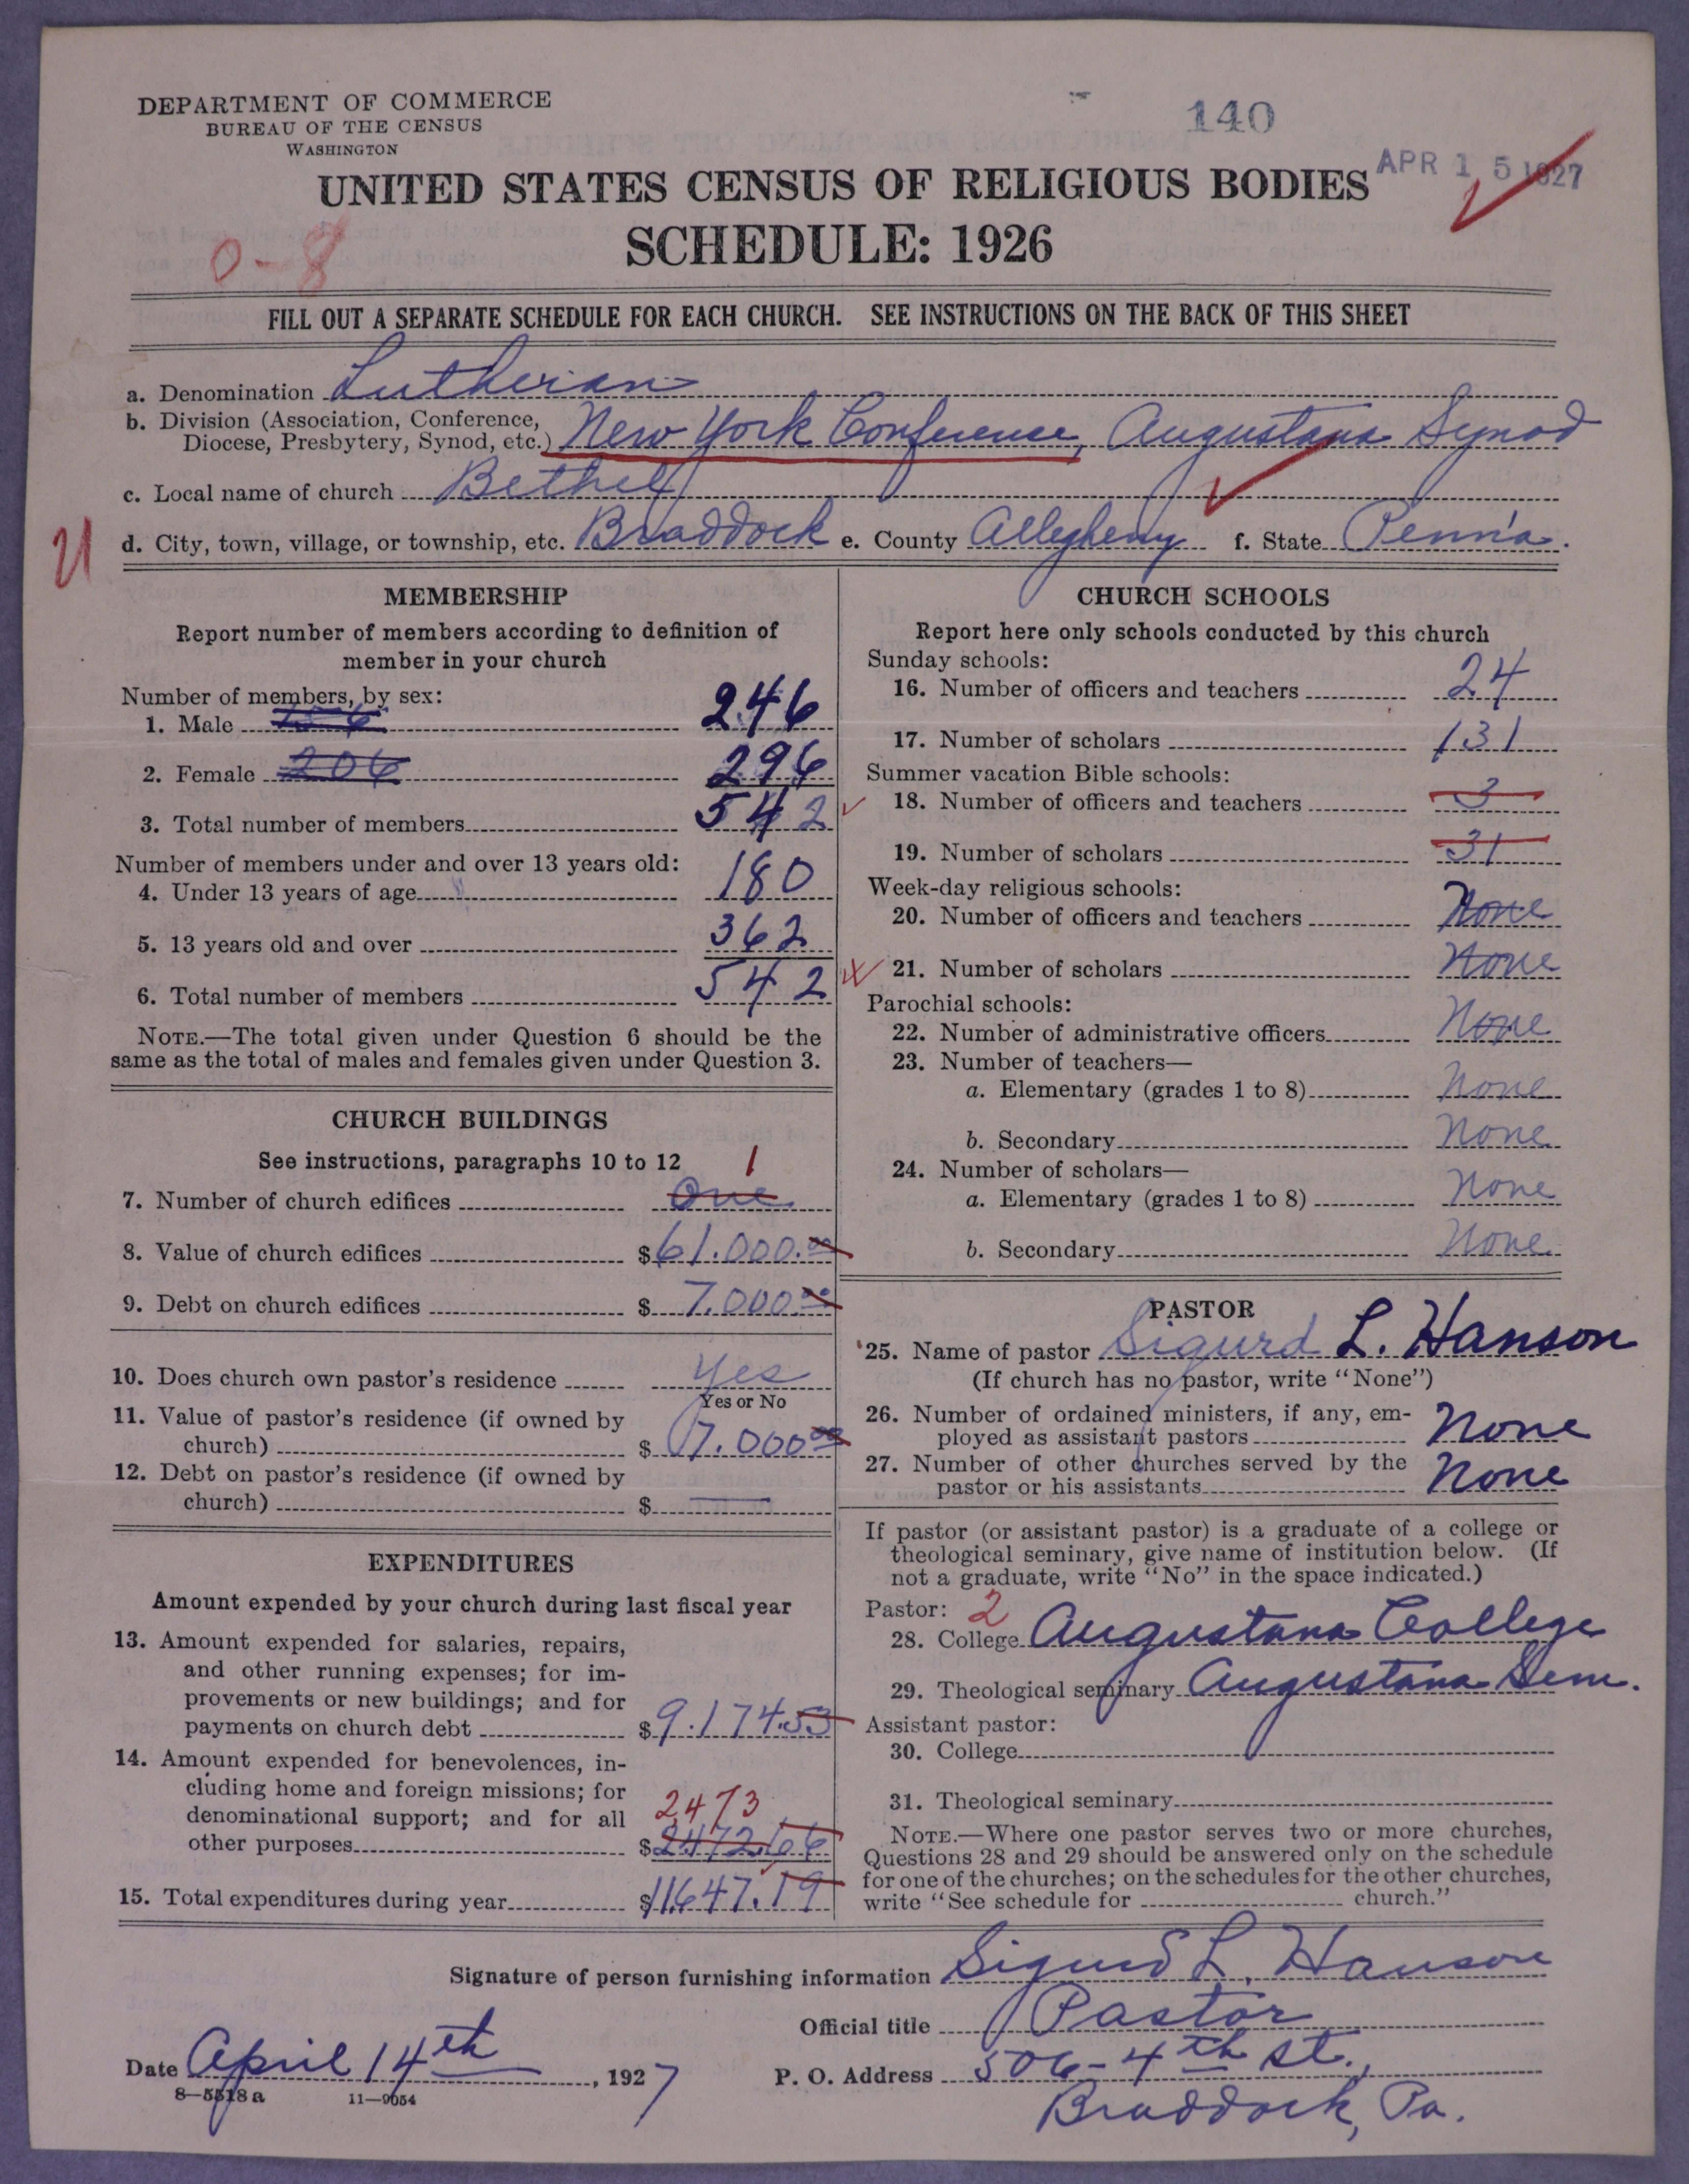 DEPARTMENT OF COMMERCE
BUREAU OF THE CENSUS
WASHINGTON
140
APR 15 1927
UNITED STATES CENSUS OF RELIGIOUS BODIES
SCHEDULE: 1926
0-8
FILL OUT A SEPARATE SCHEDULE FOR EACH CHURCH. SEE INSTRUCTIONS ON THE BACK OF THIS SHEET
a. Denomination Lutheran
b. Division (Association, Conference,
Diocese, Presbytery, Synod, etc.) New York Conference, Augustana Synod
c. Local name of church Bethel
d. City, town, village, or township, etc. Braddock e. County Allegheny f. State Penn'a.
MEMBERSHIP
Report number of members according to definition of
member in your church
Number of members, by sex:
1. Male 246
2. Female 206 296
3. Total number of members 542
Number of members under and over 13 years old:
4. Under 13 years of age 180
5. 13 years old and over 362
6. Total number of members 542
NOTE.—The total given under Question 6 should be the
same as the total of males and females given under Question 3.
CHURCH BUILDINGS
See instructions, paragraphs 10 to 12
1
7. Number of church edifices One
8. Value of church edifices $61.000.00
9. Debt on church edifices $7.000.00
10. Does church own pastor's residence Yes
Yes or No
11. Value of pastor's residence (if owned by
church) $7.000.00
12. Debt on pastor's residence (if owned by
church) $ —
EXPENDITURES
Amount expended by your church during last fiscal year
13. Amount expended for salaries, repairs,
and other running expenses; for im-
provements or new buildings; and for
payments on church debt $9.174.53
14. Amount expended for benevolences, in-
cluding home and foreign missions; for
denominational support; and for all 2473
other purposes $2472.66
15. Total expenditures during year $11647.19
CHURCH SCHOOLS
Report here only schools conducted by this church
Sunday schools:
16. Number of officers and teachers 24
17. Number of scholars 131
Summer vacation Bible schools:
18. Number of officers and teachers 3
19. Number of scholars 31
Week-day religious schools:
20. Number of officers and teachers None
21. Number of scholars None
Parochial schools:
22. Number of administrative officers None
23. Number of teachers—
a. Elementary (grades 1 to 8) None
b. Secondary None
24. Number of scholars—
a. Elementary (grades 1 to 8) None
b. Secondary None
PASTOR
25. Name of pastor Sigurd L. Hanson
(If church has no pastor, write "None")
26. Number of ordained ministers, if any, em-
ployed as assistant pastors None
27. Number of other churches served by the
pastor or his assistants None
If pastor (or assistant pastor) is a graduate of a college or
theological seminary, give name of institution below. (If
not a graduate, write "No" in the space indicated.)
Pastor: 2
28. College Augustana College
29. Theological seminary Augustana Sem.
Assistant pastor:
30. College
31. Theological seminary
NOTE.—Where one pastor serves two or more churches,
Questions 28 and 29 should be answered only on the schedule
for one of the churches; on the schedules for the other churches,
write "See schedule for church."
Signature of person furnishing information Sigurd L. Hanson
Official title Pastor
Date April 14th, 1927
P. O. Address 506-4th st.,
Braddock, Pa.
8—5518 a 11—9054